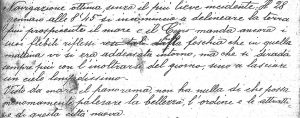 Navigazione ottima senza il più lieve incidente. Il 28
gennaio alle 8'45 si incomincia a delineare la terra
più prospiciente il mare e il manda ancora i
suoi flebili riflessi fra la foschia che in quella
mattina vi si era addensata intorno, ma che si sviava
sempre più con l'inoltrarsi del giorno, sino a lasciare
un cielo limpidissimo.
Visto da mare il panorama non ha nulla di che possa
menomamente palesare la bellezza, l'ordine e le attratti=
ve di questa città nuova.